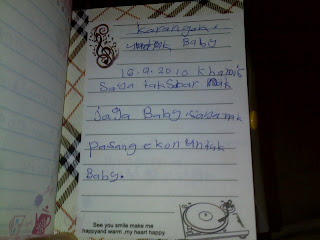 karangan
untuk Baby
16.9.2010 khamis
Saya tak Sabar nak
jaga Baby. saya nak
pasang ekon untuk
Baby.
See you smile make me
happyand warm ,my heart happy